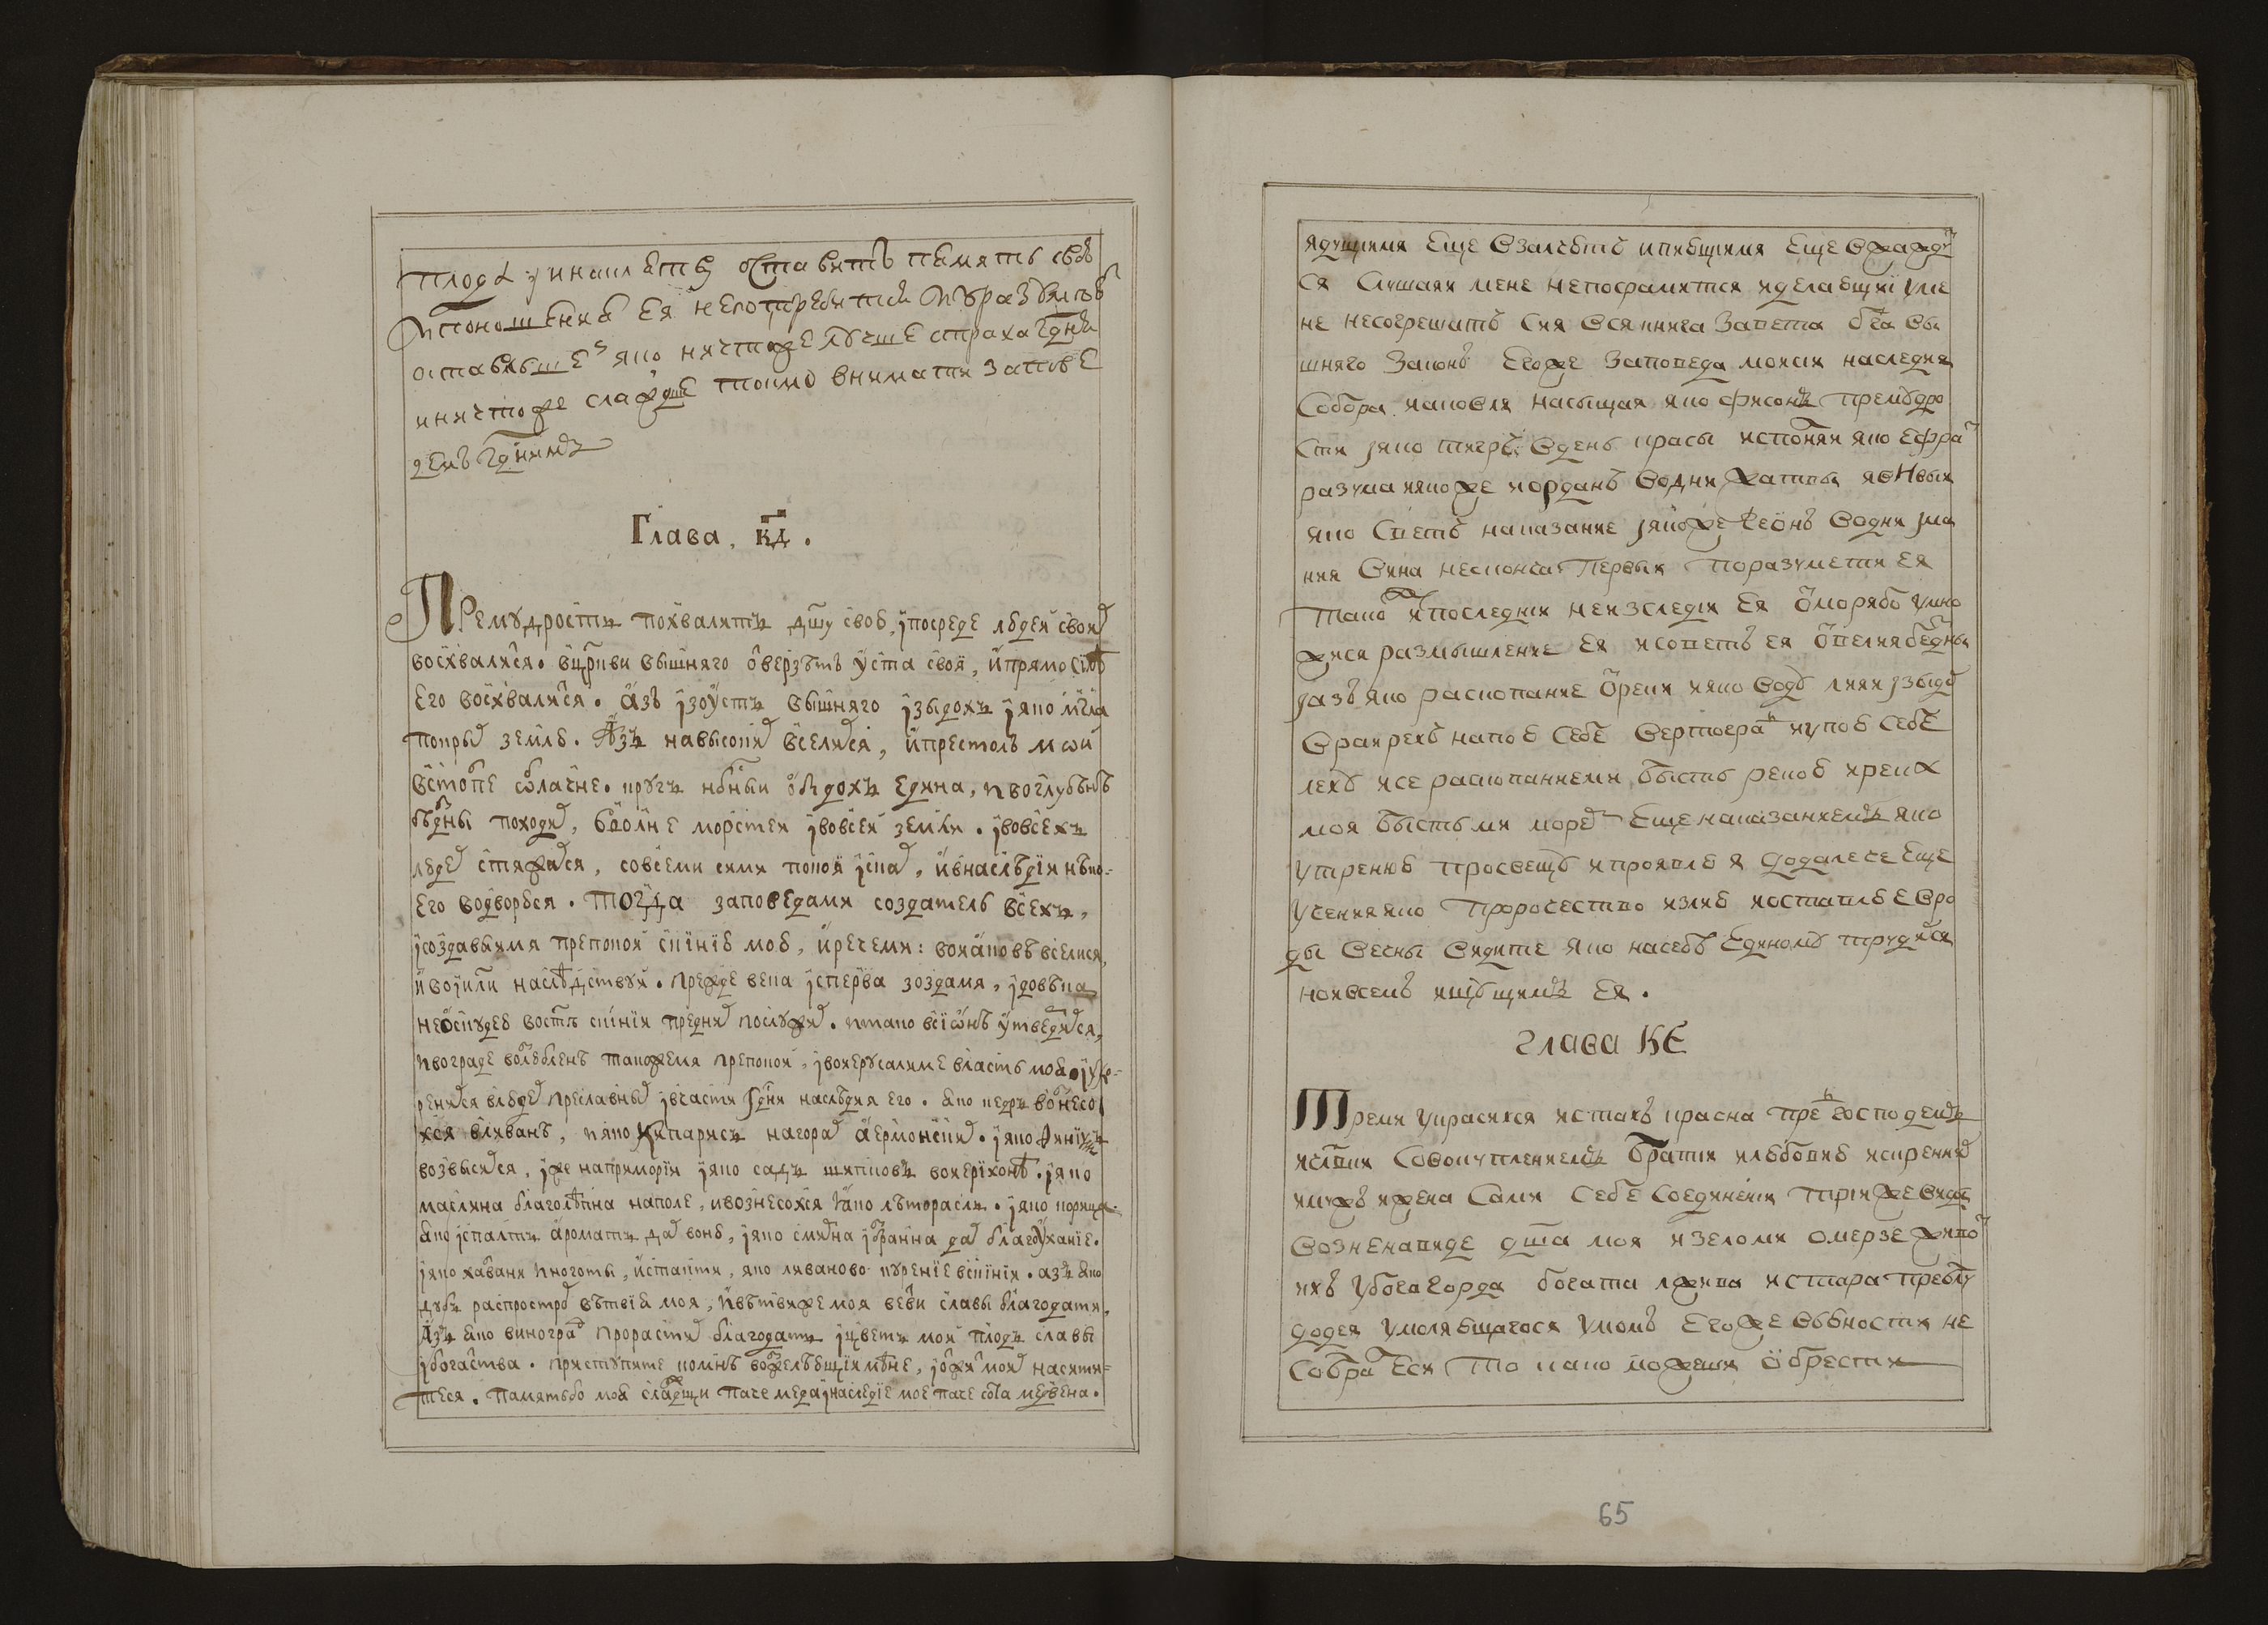 плода и наклѣтву оставитъ память свою
и поношения ея не потребится и уразумѣютъ
оставльше яко ничтоже лучше страха гдня
и ничтоже слаждше токмо внимати запове
демъ гднимъ
Глава, кд.
Премудрость похвалитъ дшу свою, і посреде людей своих
восхвалися. вцркви вышняго ѿверзетъ уста своя, и прямо силѣ
Его восхвалися. азъ ізоустъ вышняго ізыдохъ і яко мгла
покрых землю. Азъ на высоких вселихся, и престолъ мои
в столпе облачне. кругъ нбныи обыдохъ едина, и во глубинѣ
бездны походих, в волне морстеи і во всеи земли. і во всехъ
людех стяжахся, со всеми сими покоя ісках, и в наслѣдіи нѣко-
его водворюся. тогда заповедами создатель всехъ,
і создавыимя препокои скінію мою, и рече ми: во иаковѣ вселися,
и во ізраили наслѣдствуй. прежде века ісперва создамя, і до вѣка
не оскудею во стѣ скініи пред ним послужих. и тако в сіонѣ утвердихся,
и во граде возлюбленѣ такожемя препокои, і во иерусалиме власть моя. і уко-
ренихся в людех преславных і в части гдни наслѣдия его. яко кедръ вознесо
хся в ливанѣ, и яко кипарисъ на горах аермонских. і яко финікъ
возвысихся, іже на примориі і яко садъ шипковъ во иерихонѣ. і яко
маслина благолѣпна на поле, и вознесохся яко лѣторасль. і яко корица
яко іспалтъ ароматъ дах воню, і яко смирна ізбранна дах благоуханіе.
і яко халвани и ноготы, и стакти, яко ливаново курение в скініи. азъ яко
дубъ распрострох вѣтвія моя, и вѣтвиже моя ветви славы благодати.
Азъ яко виноград прорастих благодать і цветъ мой плодъ славы
і богатства. приступите ко мнѣ вожделѣющіи мене, і от жит моих насыти-
теся. память бо моя слаждши паче меда і наследие мое паче сота медвена.
ядущиимя еще взалчютъ и пиющиимя еще вжажду
ся Слушаяи мене непосрамится и делающіи у ме
не несогрешатъ сия вся книга завета бга вы
шняго законъ егоже заповеда моиси наследия
собора иаковля насыщая яко фисонъ премудро
сти і яко тигръ в день красы исполняи яко ефра
разума и якоже иорданъ во дни жатвы
яко светъ наказание і якоже геонъ во дни има
ния вина несконча первыи поразумети ея
тако и последнии неизследи ея от моря бо умно
жися размышление ея и советъ ея от великия бездны
і азъ яко раскопание от реки и яко водо ізыдо
в раи рехъ напою себе вертогра и упою себе
леху и се раскопание ми бысть рекою и река
моя бысть ми море еще наказаниемъ яко
утренюю просвещу и проявлю я до далече еще
учения яко пророчество излию и оставлю е в ро
ды вечны видите яко не себѣ единому трудихся
но и всемъ ищущимъ ея.
глава кє
Треми украсихся и стахъ красна пред господемъ
и Совокуплениемъ братии и любовию искренних
и мужъ и жена Сами Себе соединении трижевида
возненавиде дша моя и зело ми омерзе живо
ихъ убога горда богата лжива и стара прелю
додея умоляющагося умомъ егоже въюности не
собрал еси то како можеши обрести
65